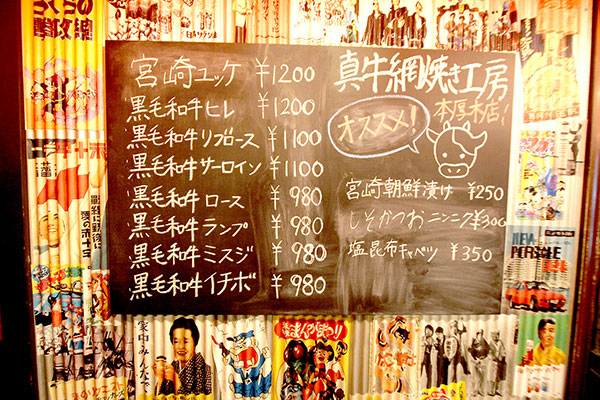 宮崎ユッケ ¥1200
黒毛和牛ヒレ ¥1200
黒毛和牛リブロース ¥1100
黒毛和牛サーロイン ¥1100
黒毛和牛ロース ¥980
黒毛和牛ランプ ¥980
黒毛和牛ミスジ ¥980
黒毛和牛イチボ ¥980
真牛網焼き工房
本厚木店!
オススメ!
宮崎朝鮮漬け ¥250
しそかつおニンニク ¥300
塩昆布キャベツ ¥350
NEW